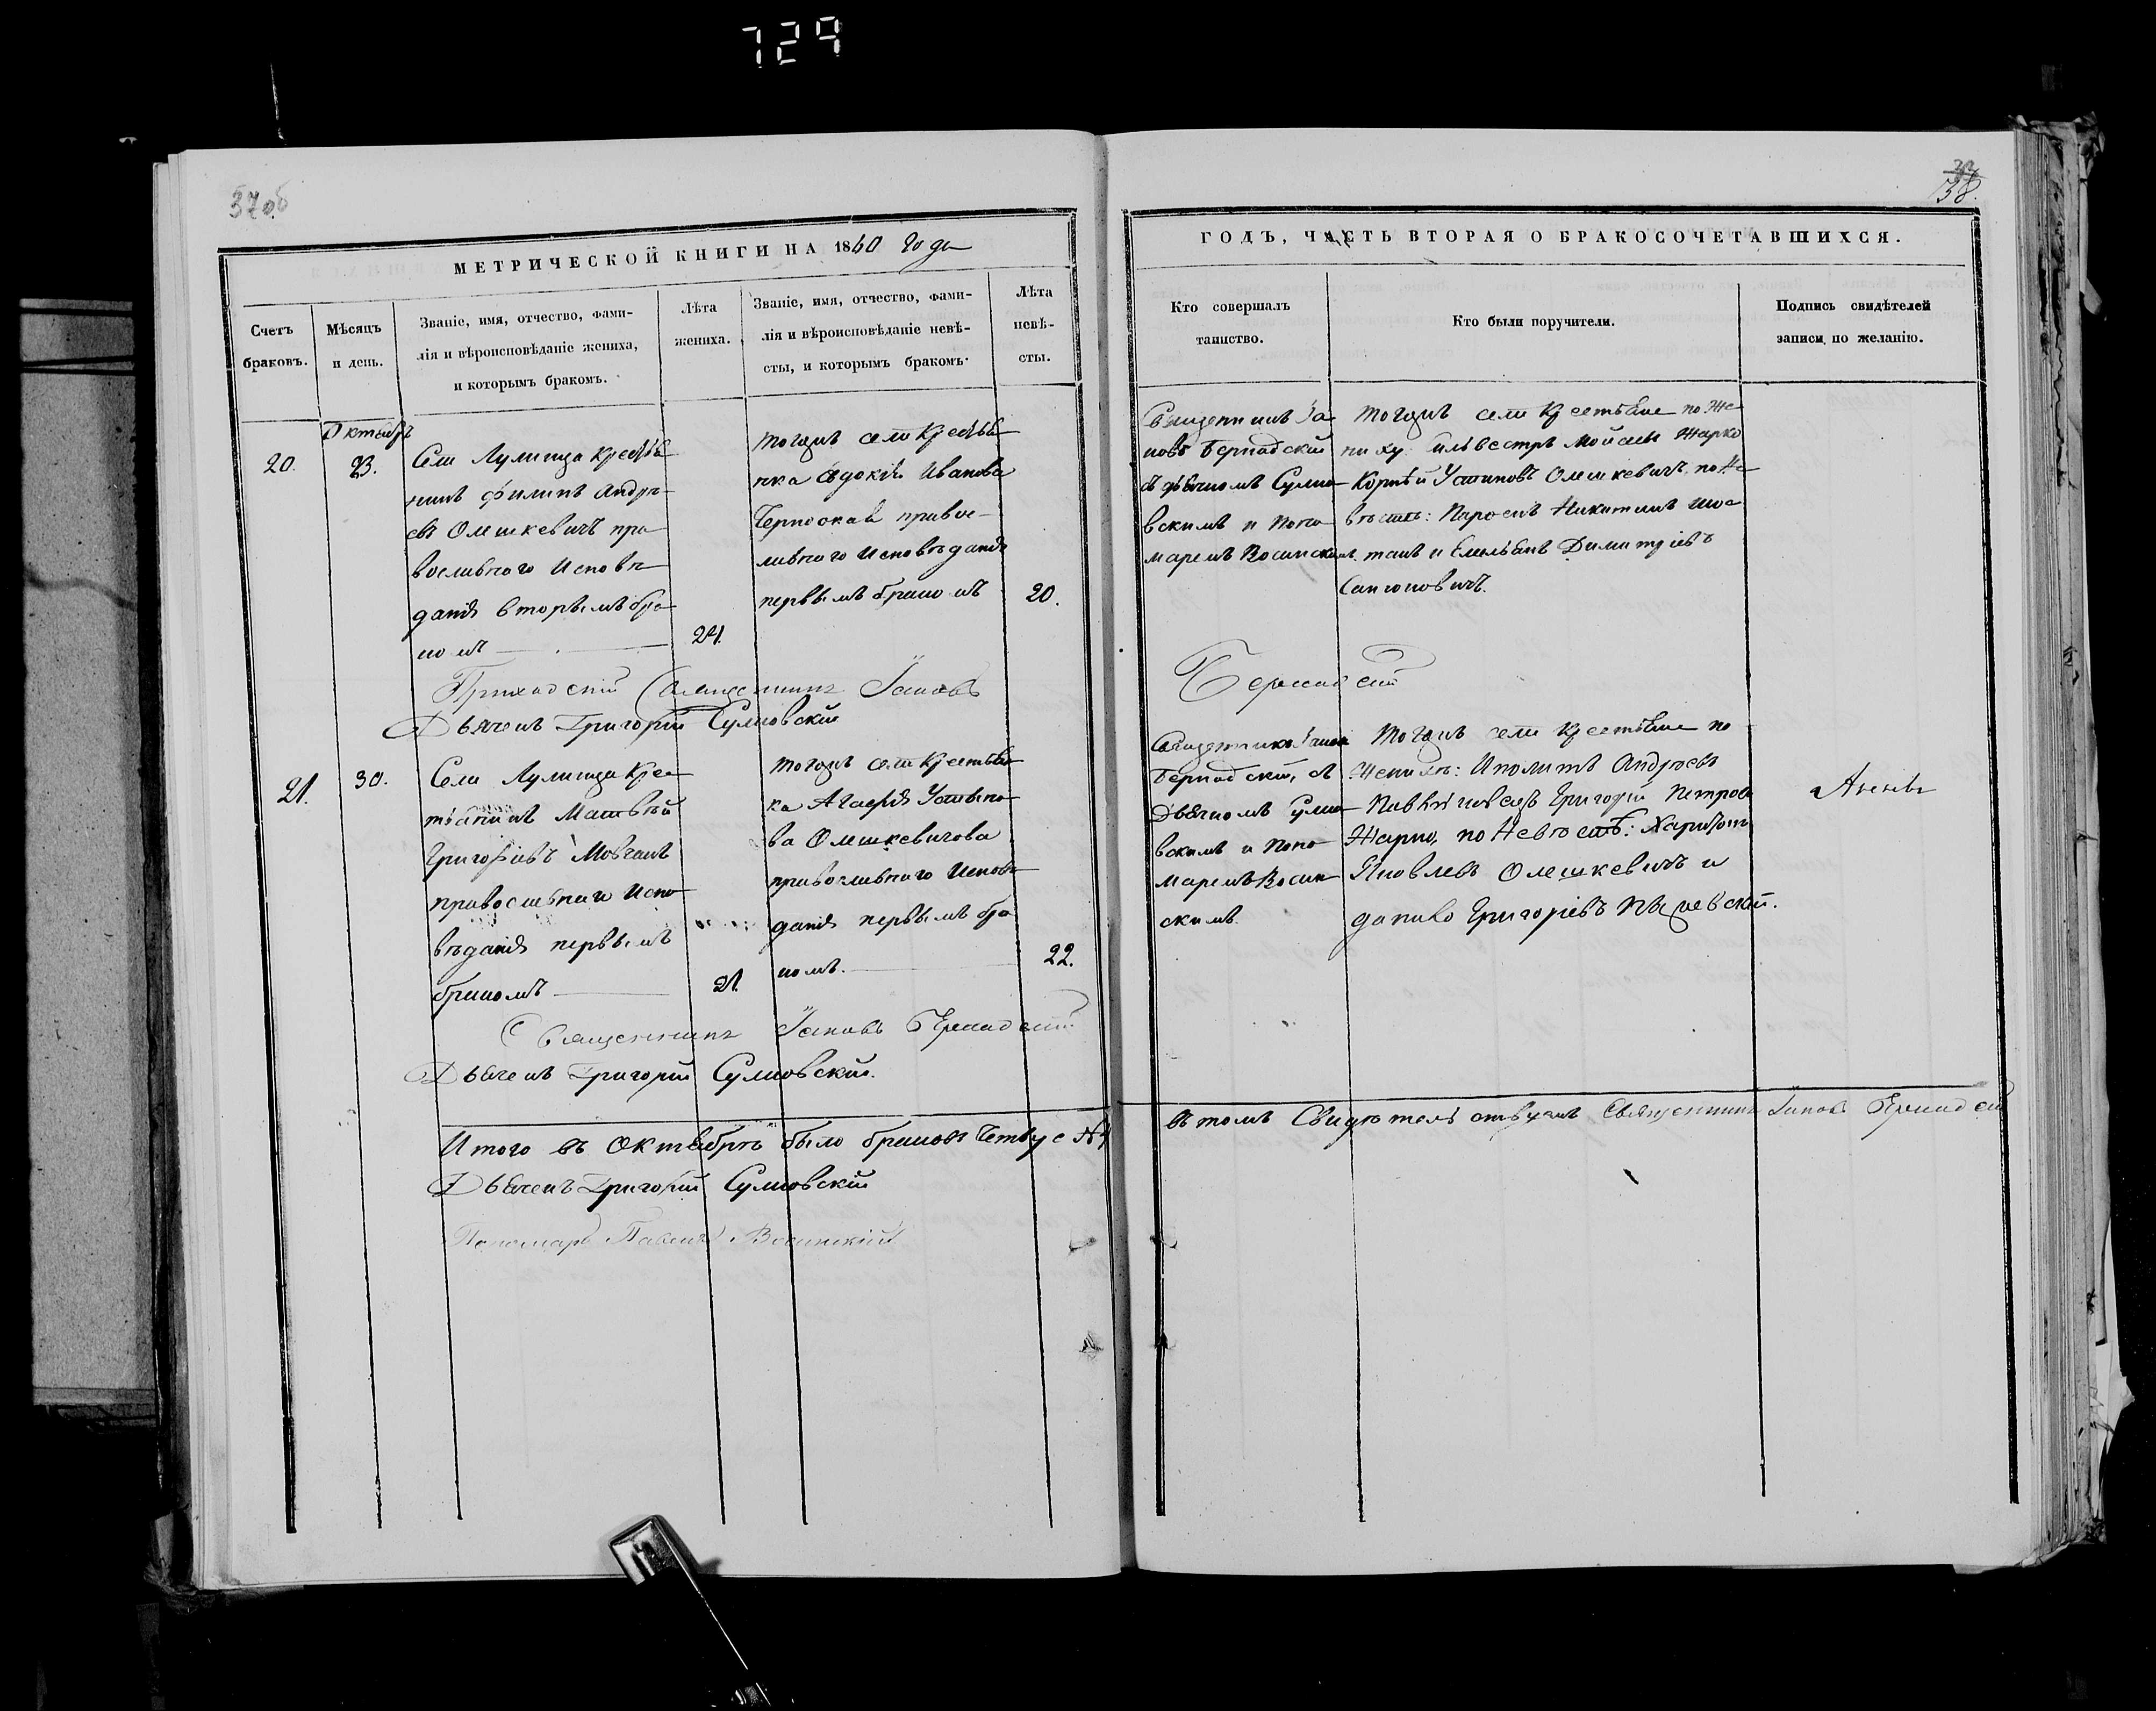 729
37об
38.
МЕТРИЧЕСКОЙ КНИГИ НА 1840 года
Счетъ
браковъ.
Мѣсяцъ
и день.
Званіе, имя, отчество, фами-
лія и вѣроисповѣданіе жениха,
и которымъ бракомъ.
Лѣта
жениха.
Званіе, имя, отчество, фами-
лія и вѣроисповѣданіе невѣ-
сты, и которымъ бракомъ.
Лѣта
невѣ-
сты.
Октябрь
20.
23.
Села крестья
нинъ Филипъ Андре
евъ Олешкевичъ пра
вославного исповѣ
данія вторымъ бра
комъ
24.
тогожъ села крестья
нка Евдокія Иванова
правос-
лавного исповѣданія
первымъ бракомъ
20.
Приходскій Священникъ Іаковъ
Дьячекъ Григорій Сулковскій
21.
30.
Села крес
тьянинъ Матвѣй
Григоріевъ Мовчанъ
православнаго испо
вѣданія первымъ
бракомъ
21.
тогожъ села крестьян
ка Агафія Устино
ва Олешкевичова
православного исповѣ
данія первымъ бра
комъ.
22.
Священникъ Іаковъ Бернадскій
Дьячекъ Григорій Сулковскій.
Итого въ Октябрѣ было браковъ
Дьячекъ Григорій Сулковскій
Пономарь Павелъ Восинскій
ГОДЪ, ЧАСТЬ ВТОРАЯ О БРАКОСОЧЕТАВШИХСЯ.
Кто совершалъ
таинство.
Кто были поручители.
Подпись свидѣтелей
записи по желанію.
Священникъ Іа
ковъ Бернадскій
съ дьячкомъ Сулко
вскимъ и поно
маремъ Восинскимъ.
тогожъ села крестьяне по же
ниху Сильвестръ Жарко
Корнѣй Устиновъ Олешкевичъ по не
вѣстѣ: Никитинъ Шос
такъ и Емельянъ Димитріевъ
Бернадскій
Священникъ Іаковъ
Бернадскій, съ
Дьячкомъ Сулко
вскимъ и поно
маремъ Восин
скимъ.
тогожъ села крестьяне по
женихѣ: Иполитъ Андреевъ
Григорій Петровъ
Жарко, по невѣстѣ: Харитонъ
Яковлевъ Олешкевичъ и
данило Григоріевъ
въ томъ Свидѣтельствуемъ Священникъ Іаковъ Бернадскій